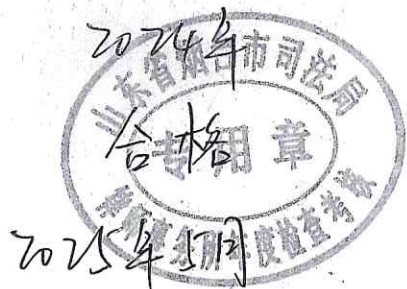 2024年
山东省烟台市司法局
合格
专用章
律师事务所年度检查考核
2025年5月